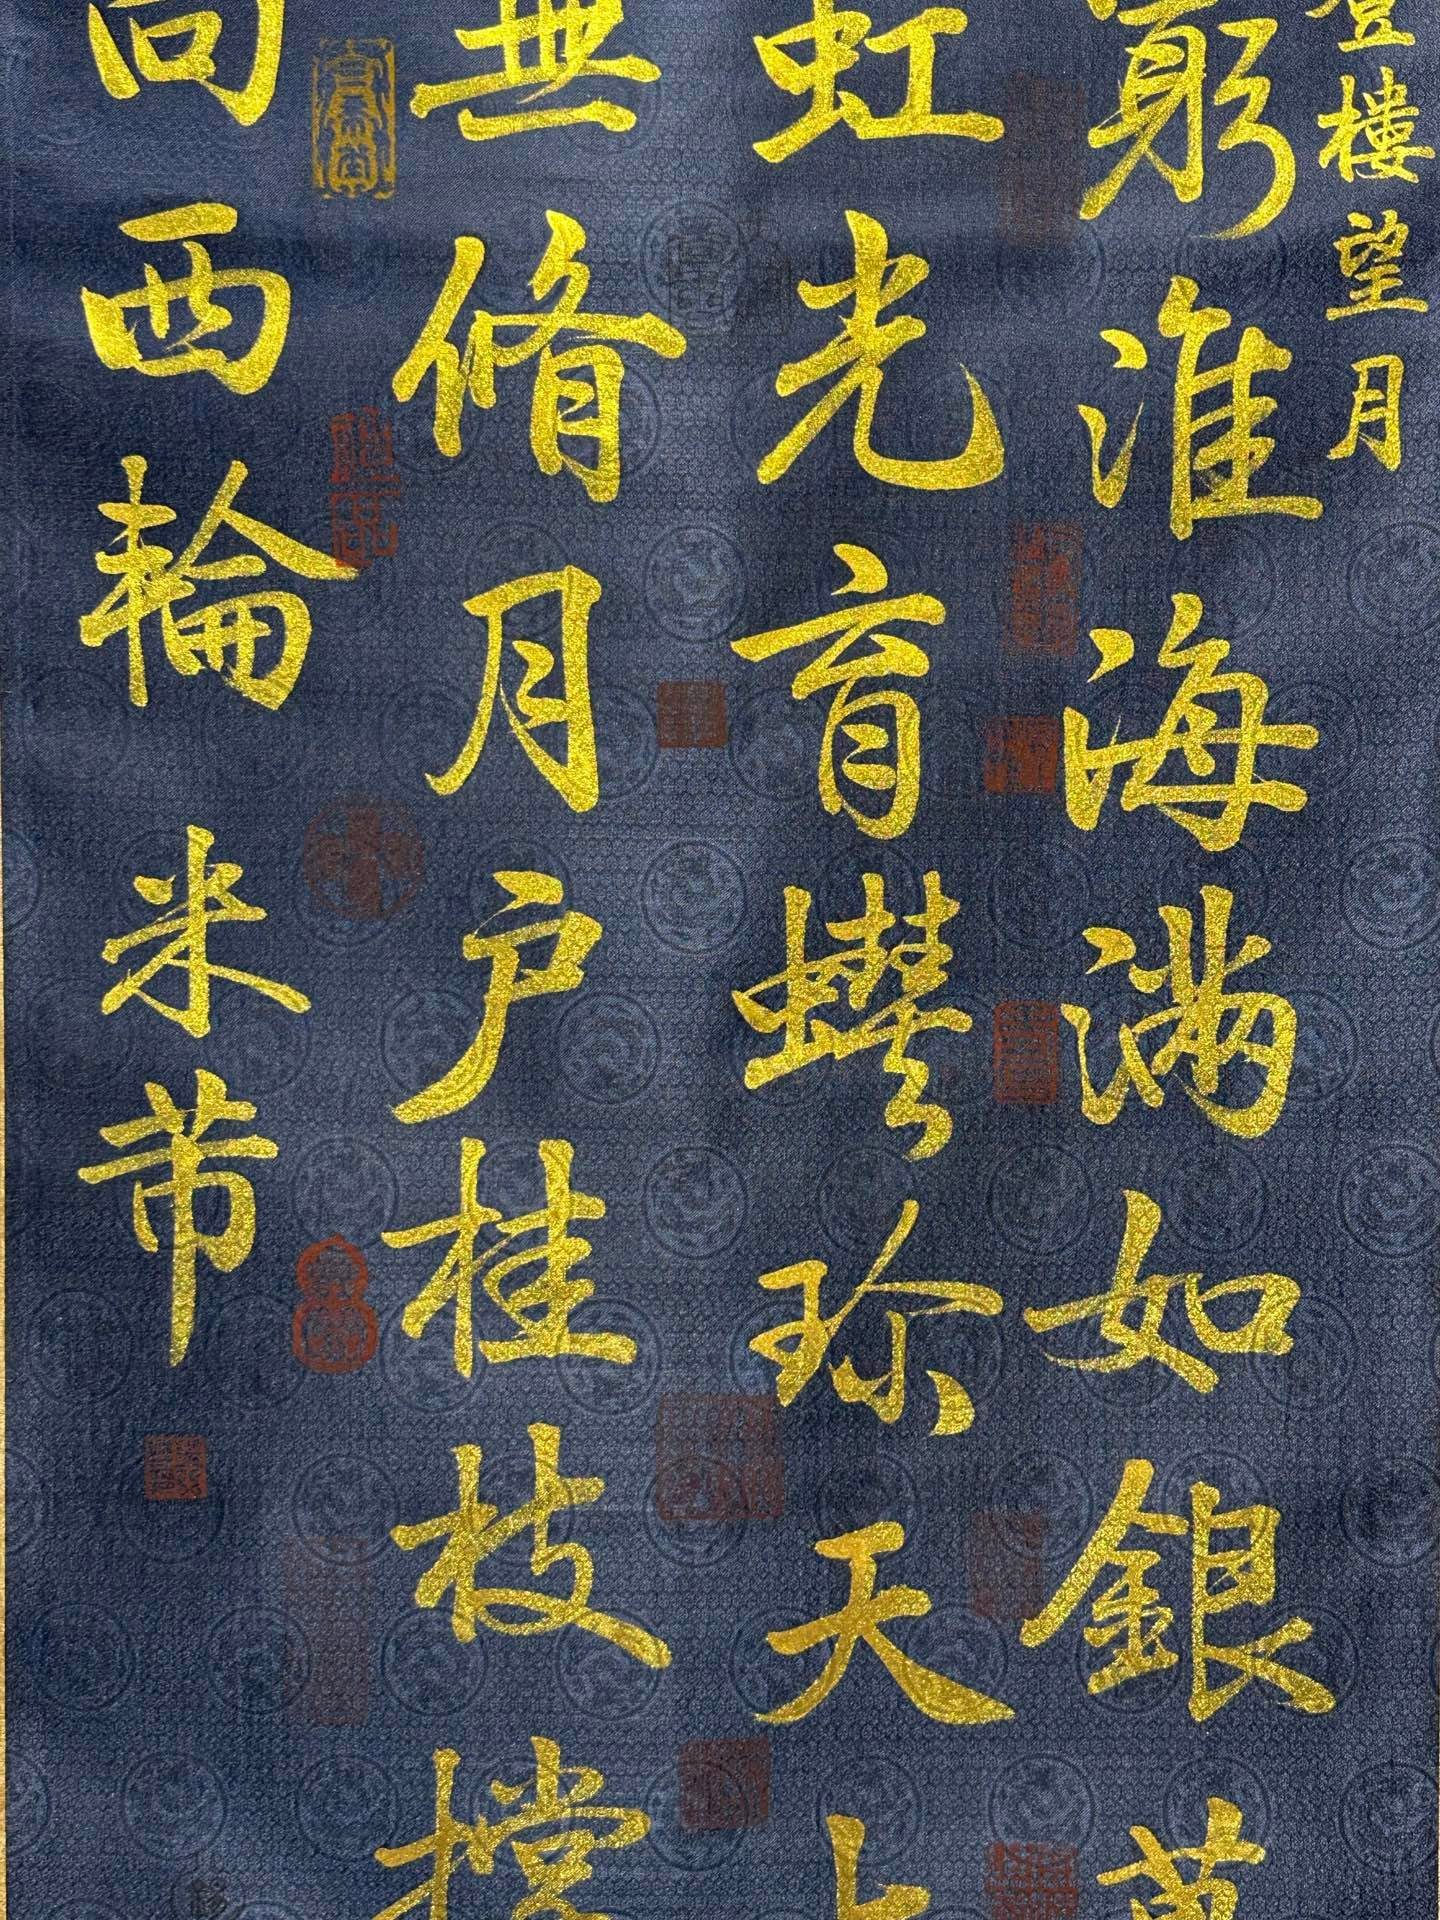 登樓望月
窮淮海滿如銀萬
虹光育蠙珍天上
無脩月户桂枝撐
向西輪米芾